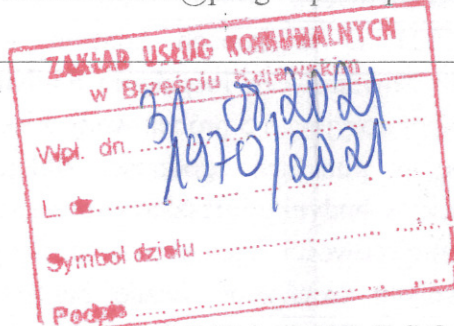 ZAKŁAD USŁUG KOMUNALNYCH
w Brześciu Kujawskim
Wpł. dn. 31 08.2021
L. dz. 1970/2021
Symbol działu
Podpis